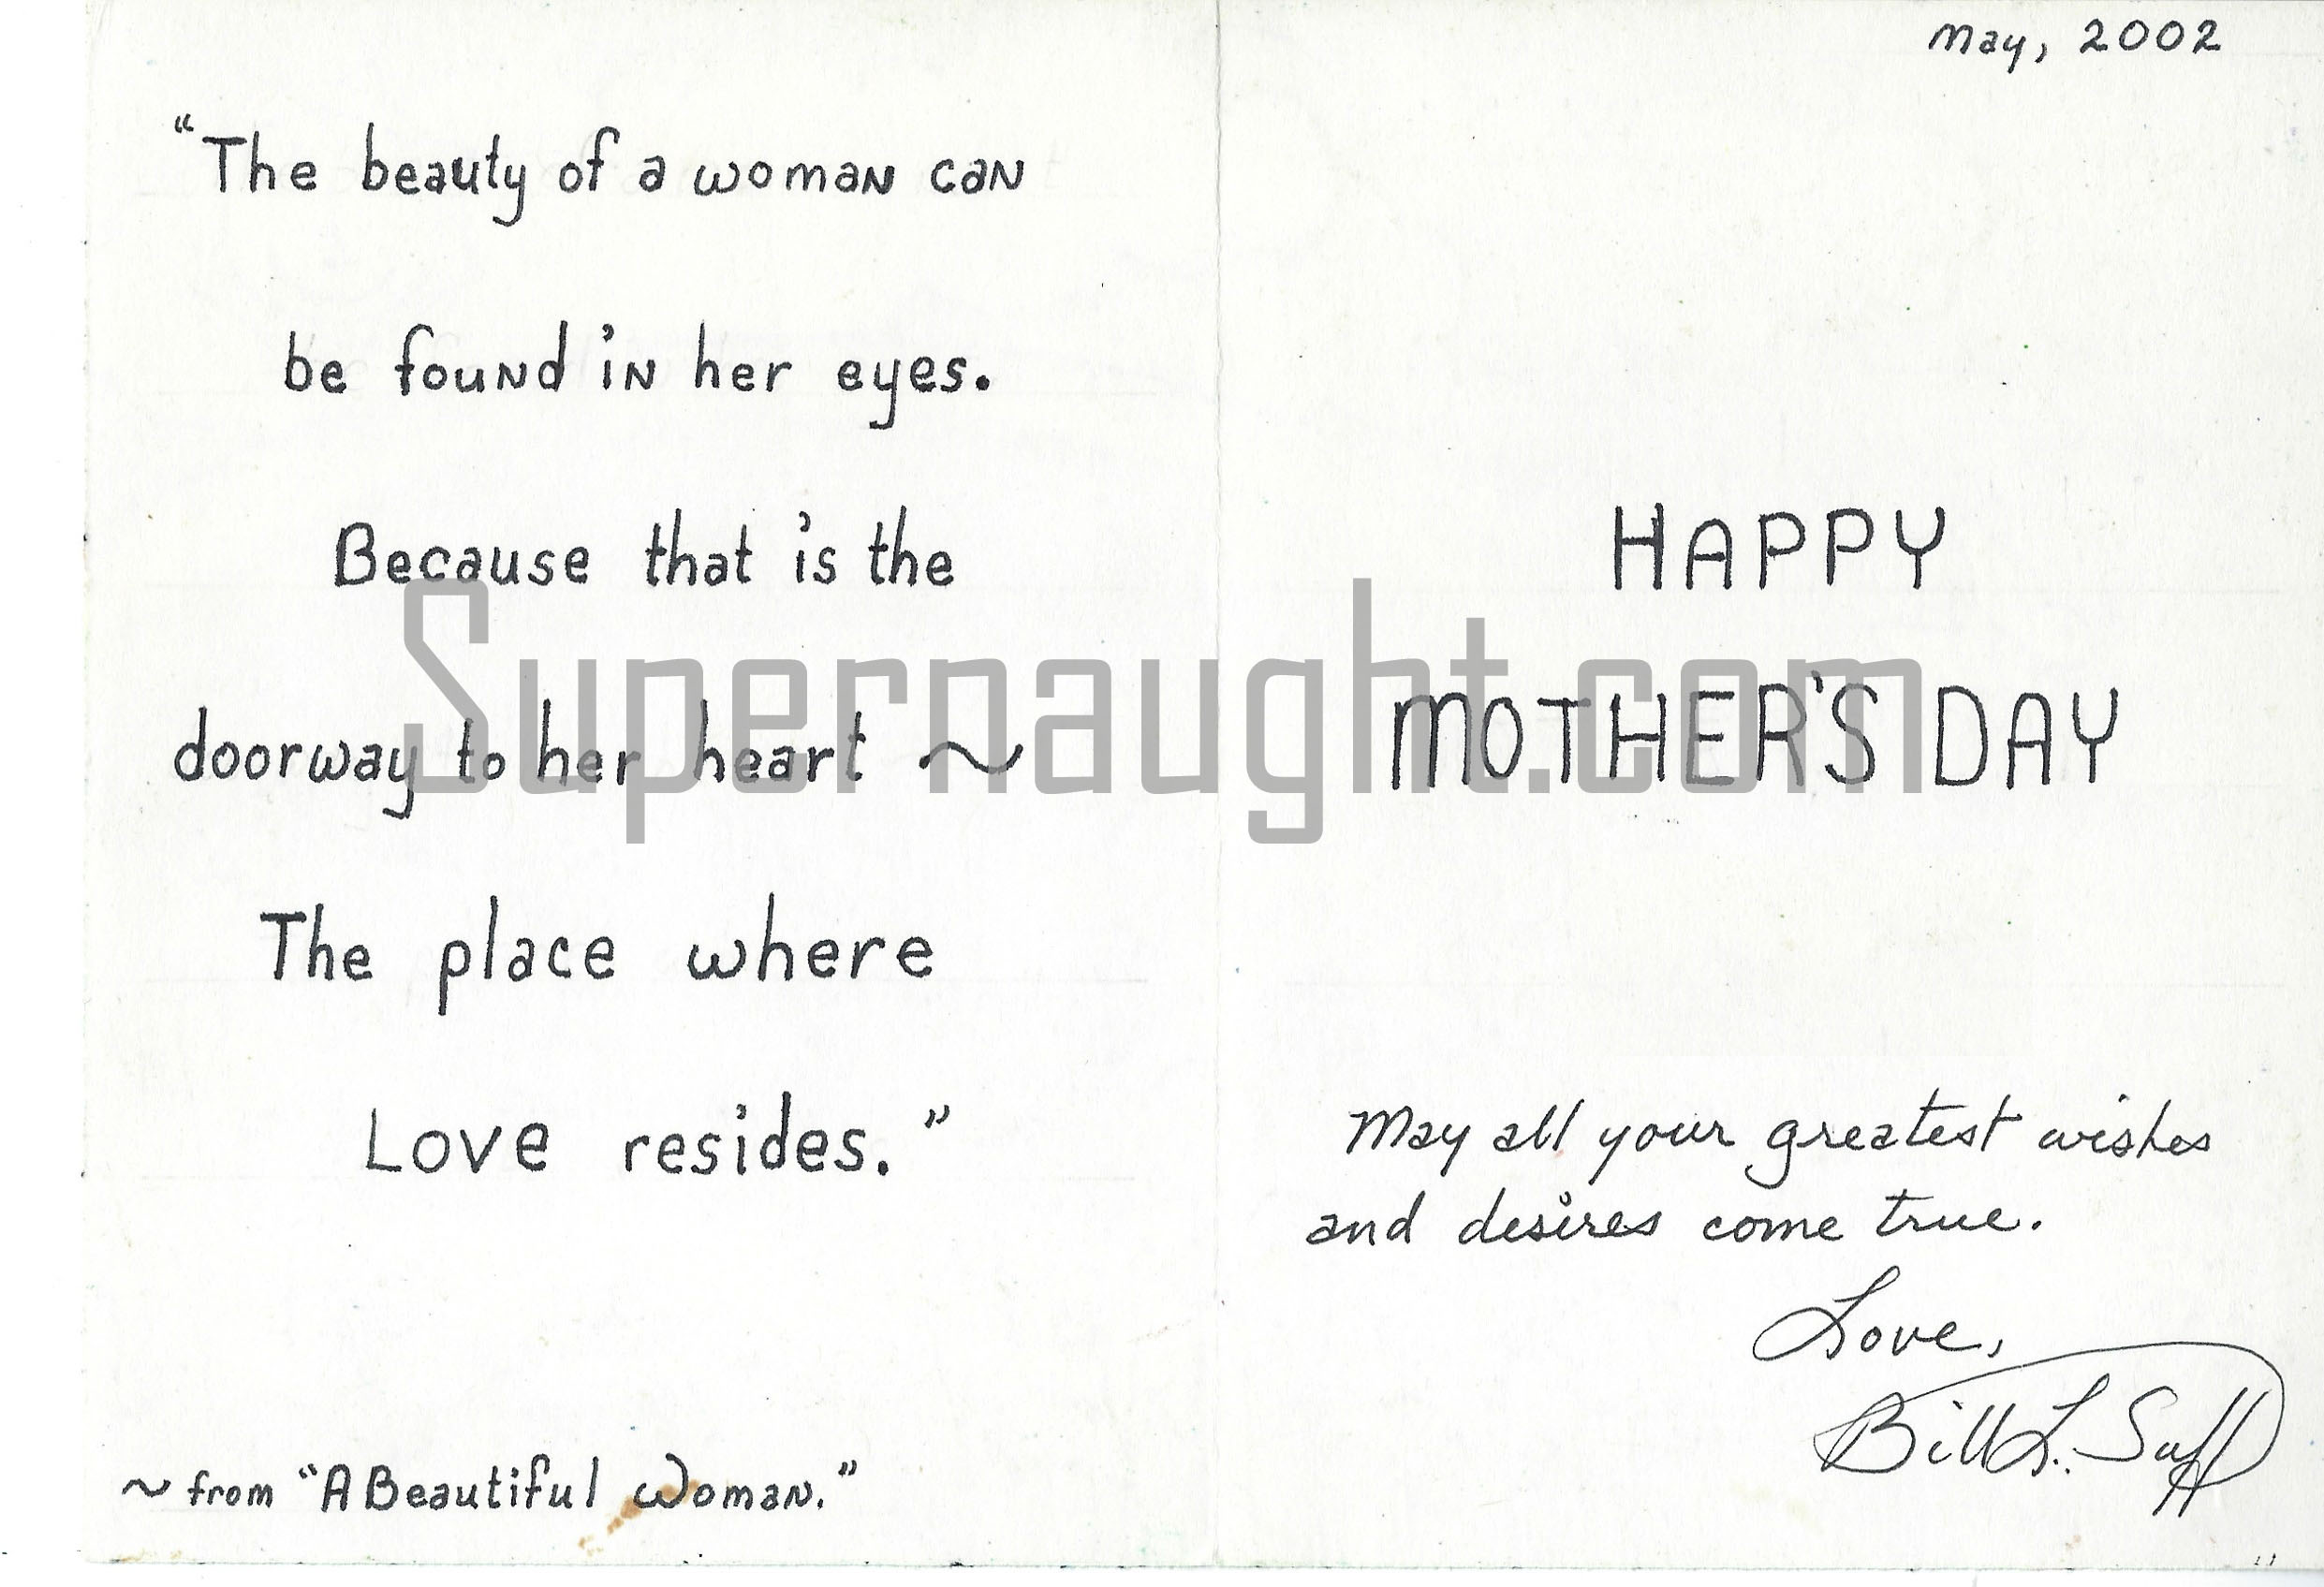 "The beauty of a woman can
be found in her eyes.
Because that is the
doorway to her heart ~
The place where
Love resides."
~ from "A Beautiful Woman."
May, 2002
HAPPY
MOTHER'S DAY
May all your greatest wishes
and desires come true.
Love,
Bill L. Suff
Supernaught.com